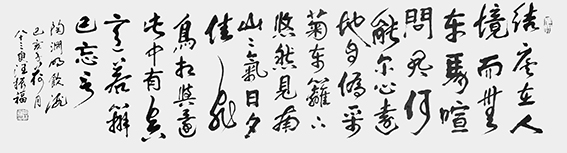 結廬在人
境而無
車馬喧
問君何
能尔心遠
地自偏采
菊東籬下
悠然見南
山々氣日夕
佳飛
鳥相與還
此中有真
意欲辯
已忘言
陶淵明飲酒
己亥年荷月
八三叟汪振福